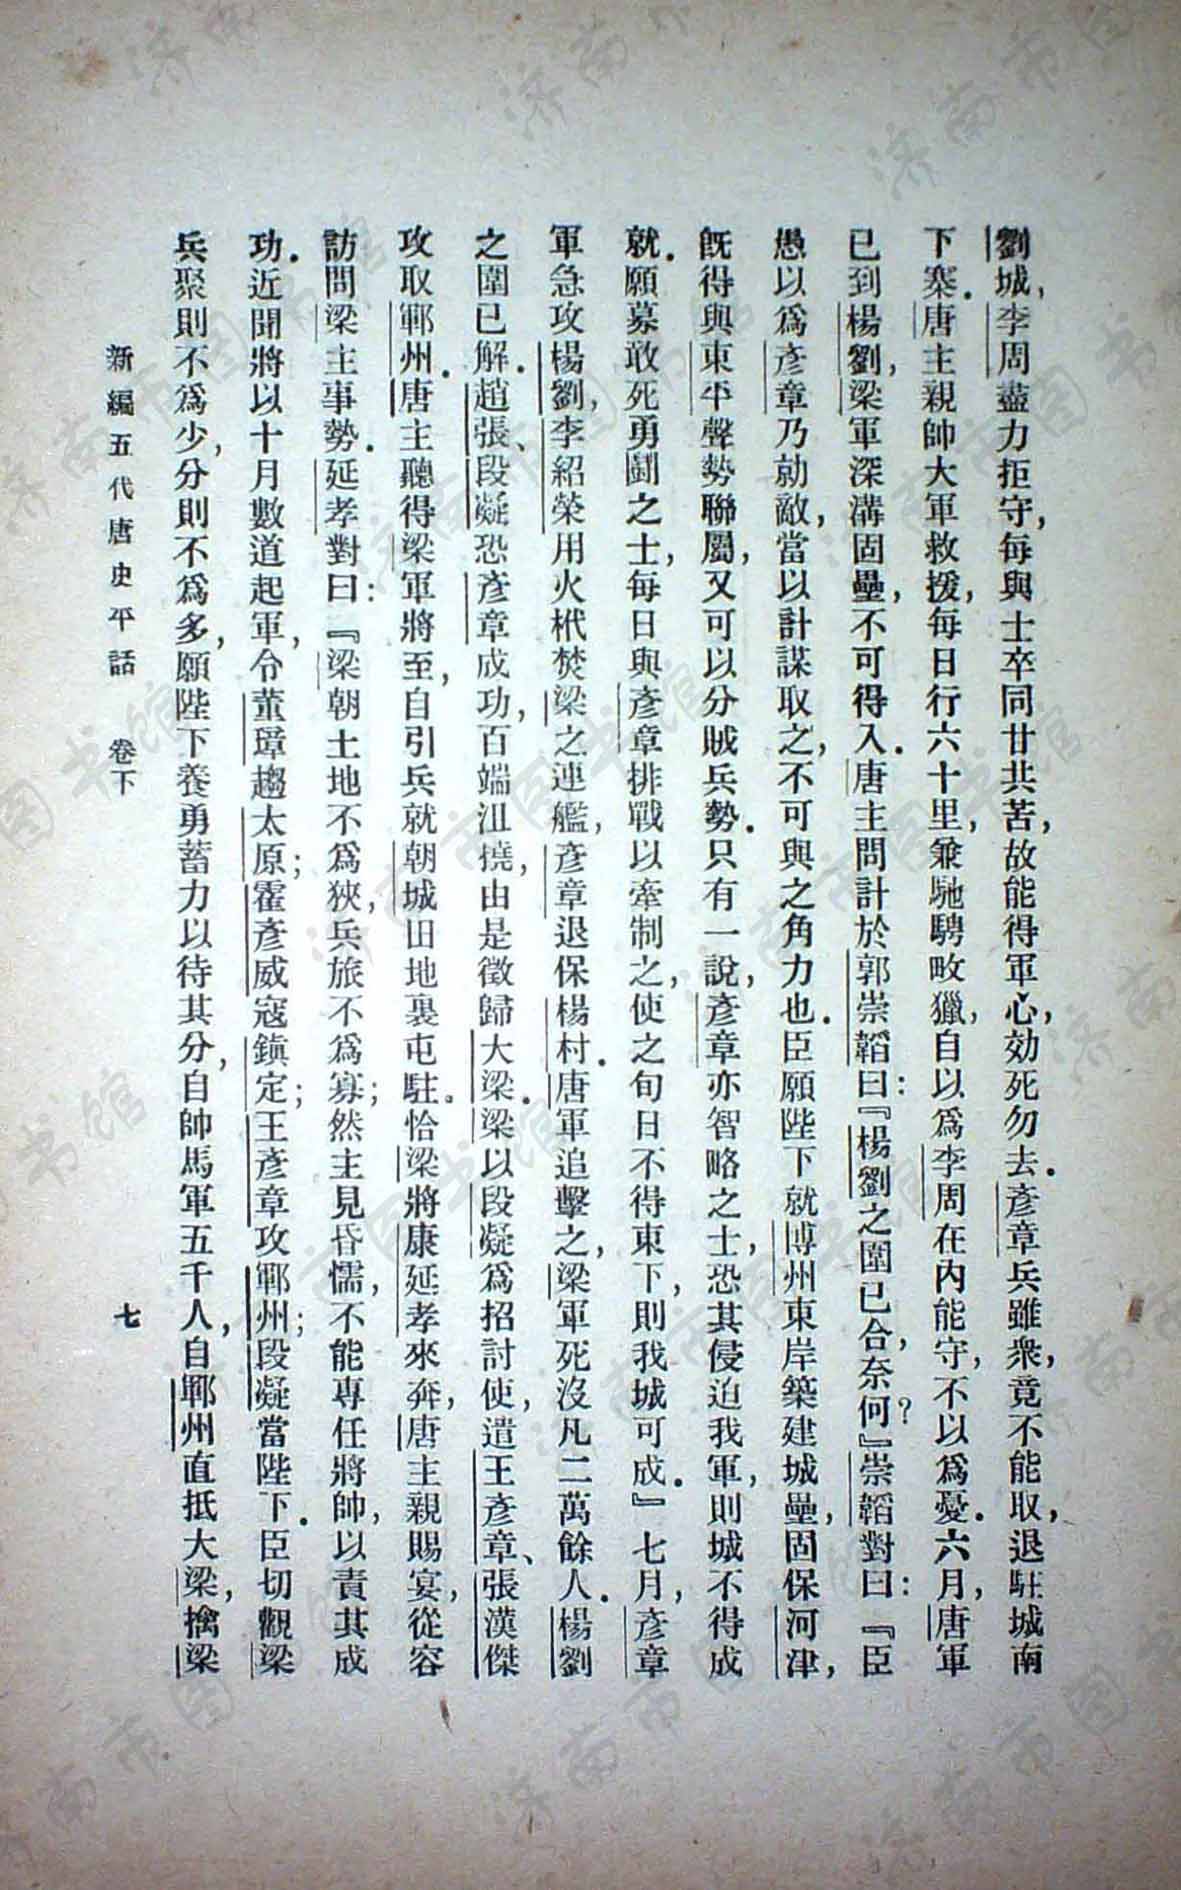 劉城，李周盡力拒守，每與士卒同甘共苦，故能得軍心，効死勿去．彥章兵雖衆，竟不能取，退駐城南
下寨．唐主親帥大軍救援，每日行六十里，兼馳騁畋獵，自以爲李周在內能守，不以爲憂．六月，唐軍
已到楊劉，梁軍深溝固壘，不可得入．唐主問計於郭崇韜曰：『楊劉之圍已合，奈何？』崇韜對曰：『臣
愚以爲彥章乃勍敵，當以計謀取之，不可與之角力也．臣願陛下就博州東岸築建城壘，固保河津，
旣得與東平聲勢聯屬，又可以分賊兵勢．只有一說，彥章亦智略之士，恐其侵迫我軍，則城不得成
就．願募敢死勇鬭之士，每日與彥章排戰以牽制之，使之旬日不得東下，則我城可成．』七月，彥章
軍急攻楊劉，李紹榮用火栰焚梁之連艦，彥章退保楊村．唐軍追擊之，梁軍死沒凡二萬餘人．楊劉
之圍已解．趙張、段凝恐彥章成功，百端沮撓，由是徵歸大梁．梁以段凝爲招討使，遣王彥章、張漢傑
攻取鄆州．唐主聽得梁軍將至，自引兵就朝城田地裏屯駐．恰梁將康延孝來奔，唐主親賜宴，從容
訪問梁主事勢．延孝對曰：『梁朝土地不爲狹，兵旅不爲寡；然主見昏懦，不能專任將帥，以責其成
功．近聞將以十月數道起軍，令董璋趨太原；霍彥威寇鎭定；王彥章攻鄆州；段凝當陛下．臣切觀梁
兵聚則不爲少，分則不爲多，願陛下養勇蓄力以待其分，自帥馬軍五千人，自鄆州直抵大梁，擒梁
新編五代唐史平話　卷下　七
济南市图书馆